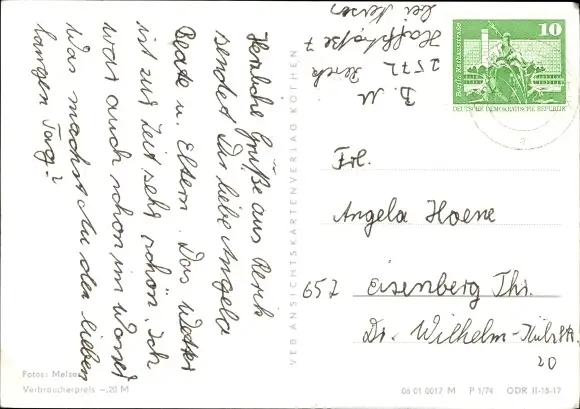 Herzliche Grüße aus Rerik
sendet Dir liebe Angela
Beate u. Eltern. Das Wetter
ist zur Zeit sehr schön. Ich
war auch schon im Wasser
Was machst du den lieben
langen Tag?
B. M
2572 Rerik
Haffstraße 7
VEB ANSICHTSKARTENVERLAG KÖTHEN
10
Berlin, Rathausstraße
DEUTSCHE DEMOKRATISCHE REPUBLIK
Frl.
Angela Hoene
652 Eisenberg Thr.
Dr. Wilhelm-Külz-Str.
20
Fotos:
Verbraucherpreis –,20 M
06 01 0017 M P 1/74 ODR II-15-17